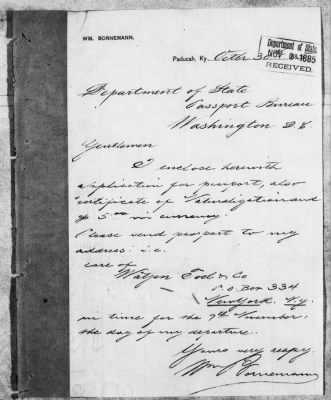 WM. BORNEMANN.
Paducah, Ky. Octbr 30
Department of State
NOV 2 1885
RECEIVED.
Department of State
Passport Bureau
Washington D.C.
Gentlemen
I enclose herewith
application for passport, also
certificate of Naturalization and
$5.00 in currency.
Please send passport to my
address: i.e.
care of
& Co
P.O. Box 334
New York. N.y.
in time for the 7th November,
the day of my departure.
Yours very respy.
Wm Bornemann